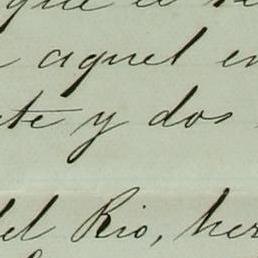 que el
aquel en
te y dos
del Rio, her